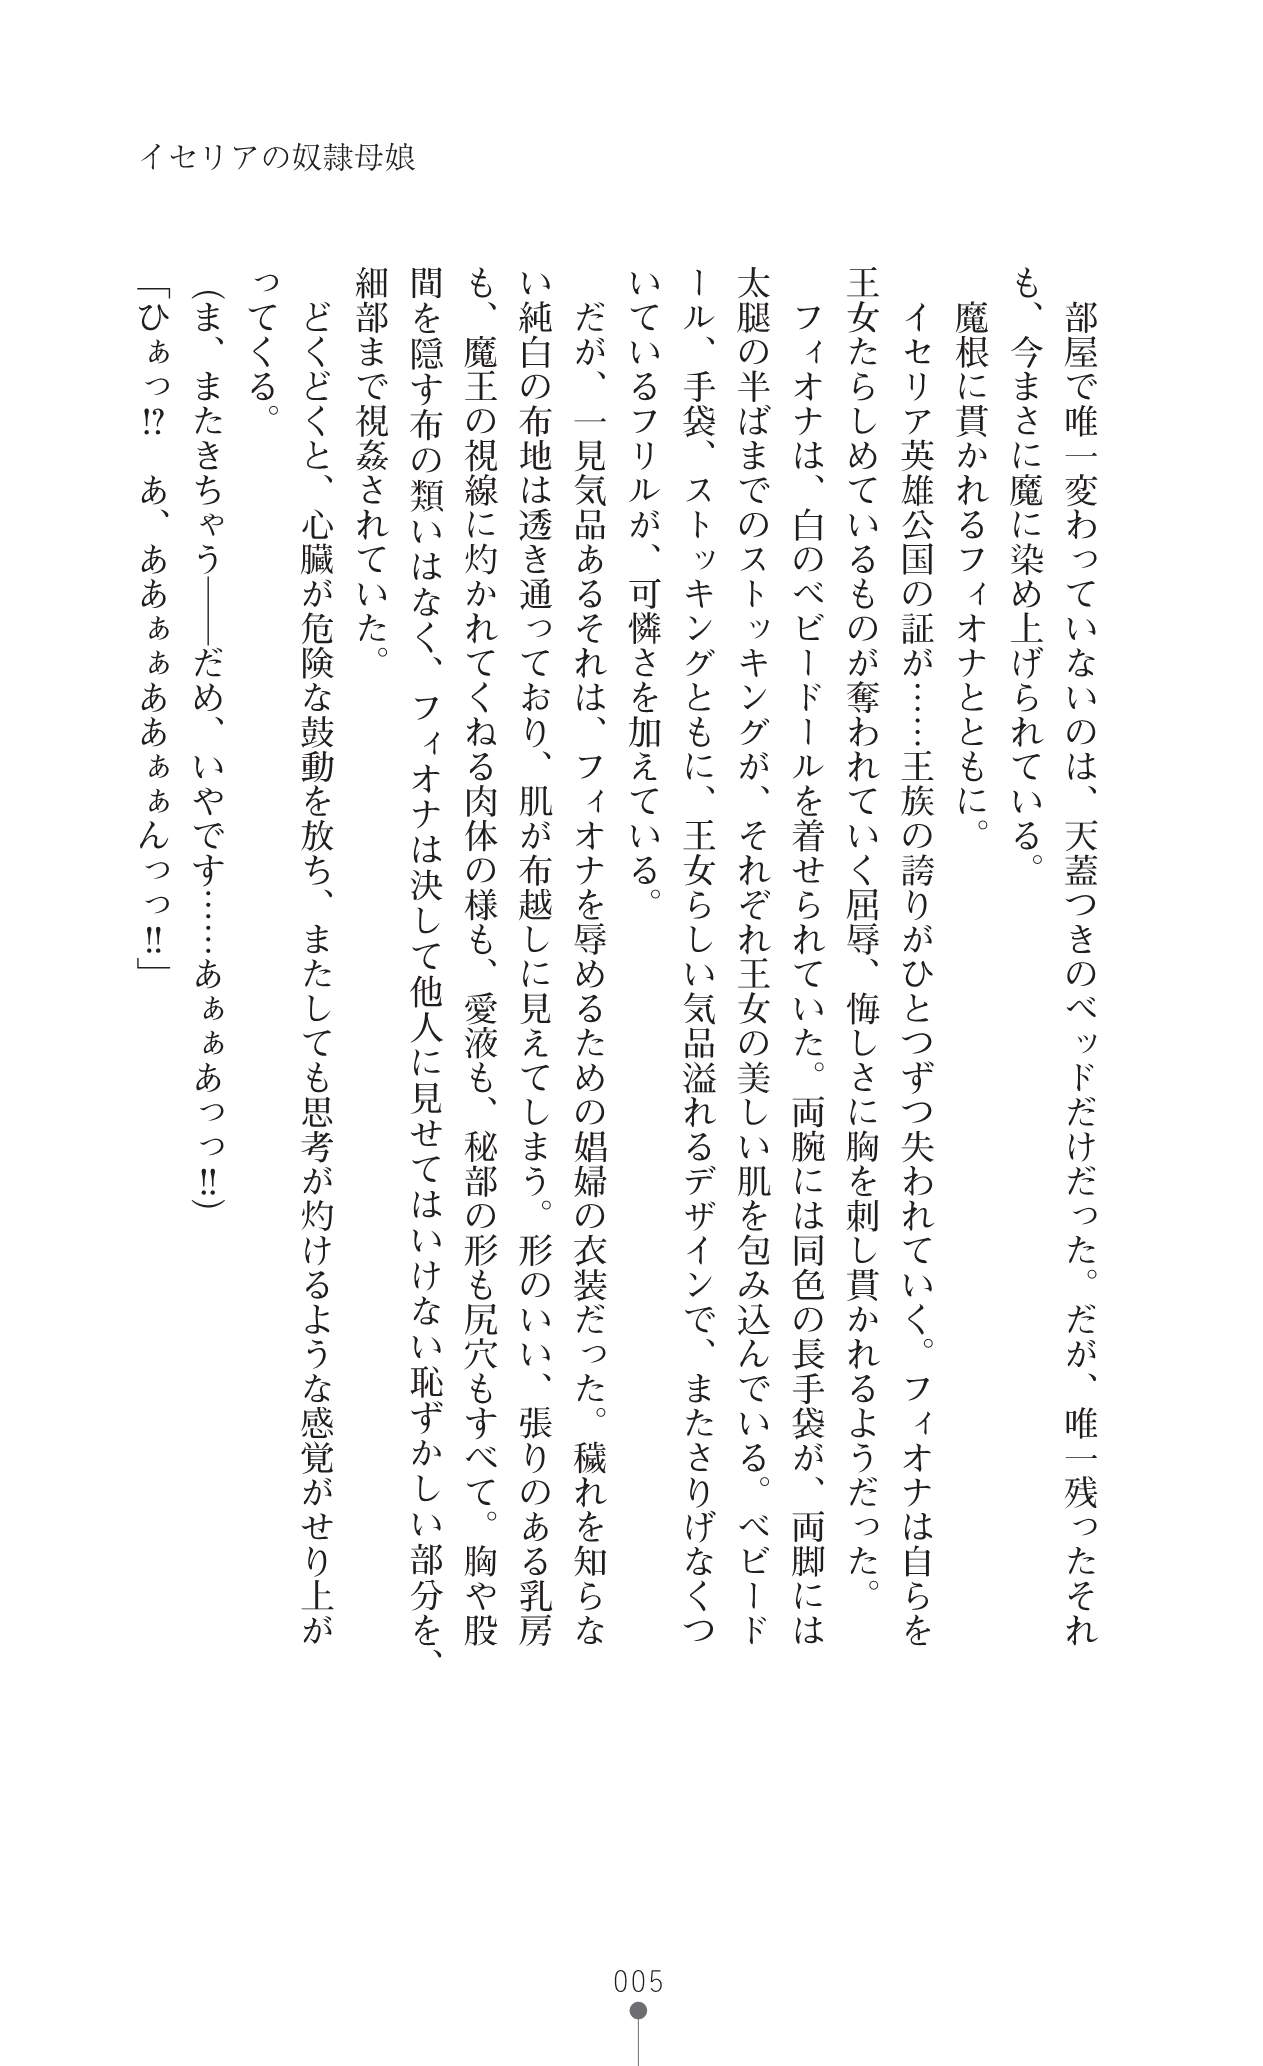 イセリアの奴隷母娘
部屋で唯一変わっていないのは、天蓋つきのベッドだけだった。だが、唯一残ったそれ
も、今まさに魔に染め上げられている。
魔根に貫かれるフィオナとともに。
イセリア英雄公国の証が……王族の誇りがひとつずつ失われていく。フィオナは自らを
王女たらしめているものが奪われていく屈辱、悔しさに胸を刺し貫かれるようだった。
フィオナは、白のベビードールを着せられていた。両腕には同色の長手袋が、両脚には
太腿の半ばまでのストッキングが、それぞれ王女の美しい肌を包み込んでいる。ベビード
ール、手袋、ストッキングともに、王女らしい気品溢れるデザインで、またさりげなくつ
いているフリルが、可憐さを加えている。
だが、一見気品あるそれは、フィオナを辱めるための娼婦の衣装だった。穢れを知らな
い純白の布地は透き通っており、肌が布越しに見えてしまう。形のいい、張りのある乳房
も、魔王の視線に灼かれてくねる肉体の様も、愛液も、秘部の形も尻穴もすべて。胸や股
間を隠す布の類いはなく、フィオナは決して他人に見せてはいけない恥ずかしい部分を、
細部まで視姦されていた。
どくどくと、心臓が危険な鼓動を放ち、またしても思考が灼けるような感覚がせり上が
ってくる。
（ま、またきちゃう――だめ、いやです……あぁぁあっっ!!）
「ひぁっ!?　あ、ああぁぁああぁぁんっっ!!」
005